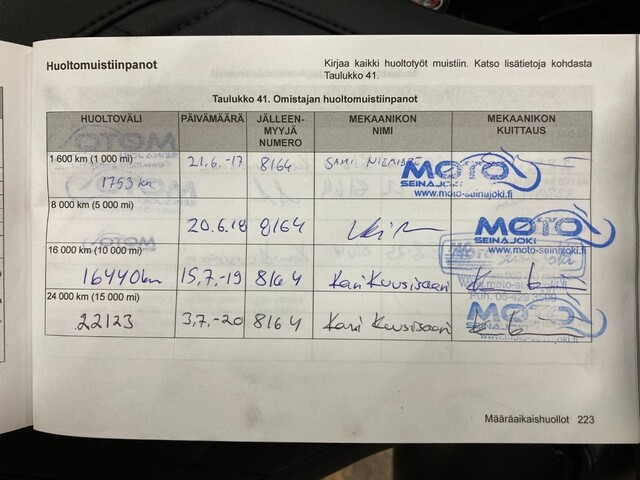 Huoltomuistiinpanot
Kirjaa kaikki huoltotyöt muistiin. Katso lisätietoja kohdasta
Taulukko 41.
Taulukko 41. Omistajan huoltomuistiinpanot
HUOLTOVÄLI PÄIVÄMÄÄRÄ JÄLLEEN-
MYYJÄ
NUMERO MEKAANIKON
NIMI MEKAANIKON
KUITTAUS
1 600 km (1 000 mi) 21.6.-17 8164 SAMI
1753 km
MOTO
SEINÄJOKI
www.moto-seinajoki.fi
8 000 km (5 000 mi)
20.6.18 8164
MOTO
SEINÄJOKI
www.moto-seinajoki.fi
16 000 km (10 000 mi)
16440km 15.7.-19 8164 Kari Kuusisaari
24 000 km (15 000 mi)
22123 3.7.-20 8164 Kari Kuusisaari
MOTO
Määräaikaishuollot 223